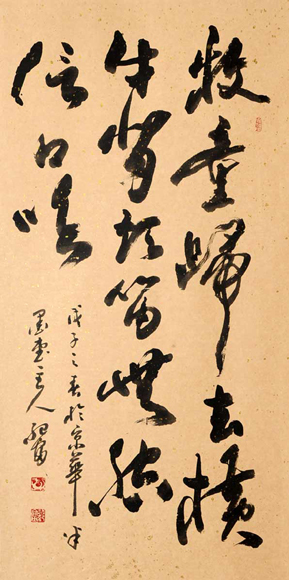 牧童歸去横
牛背短笛無腔
信口吹
戊子之春於京華半
墨堂主人